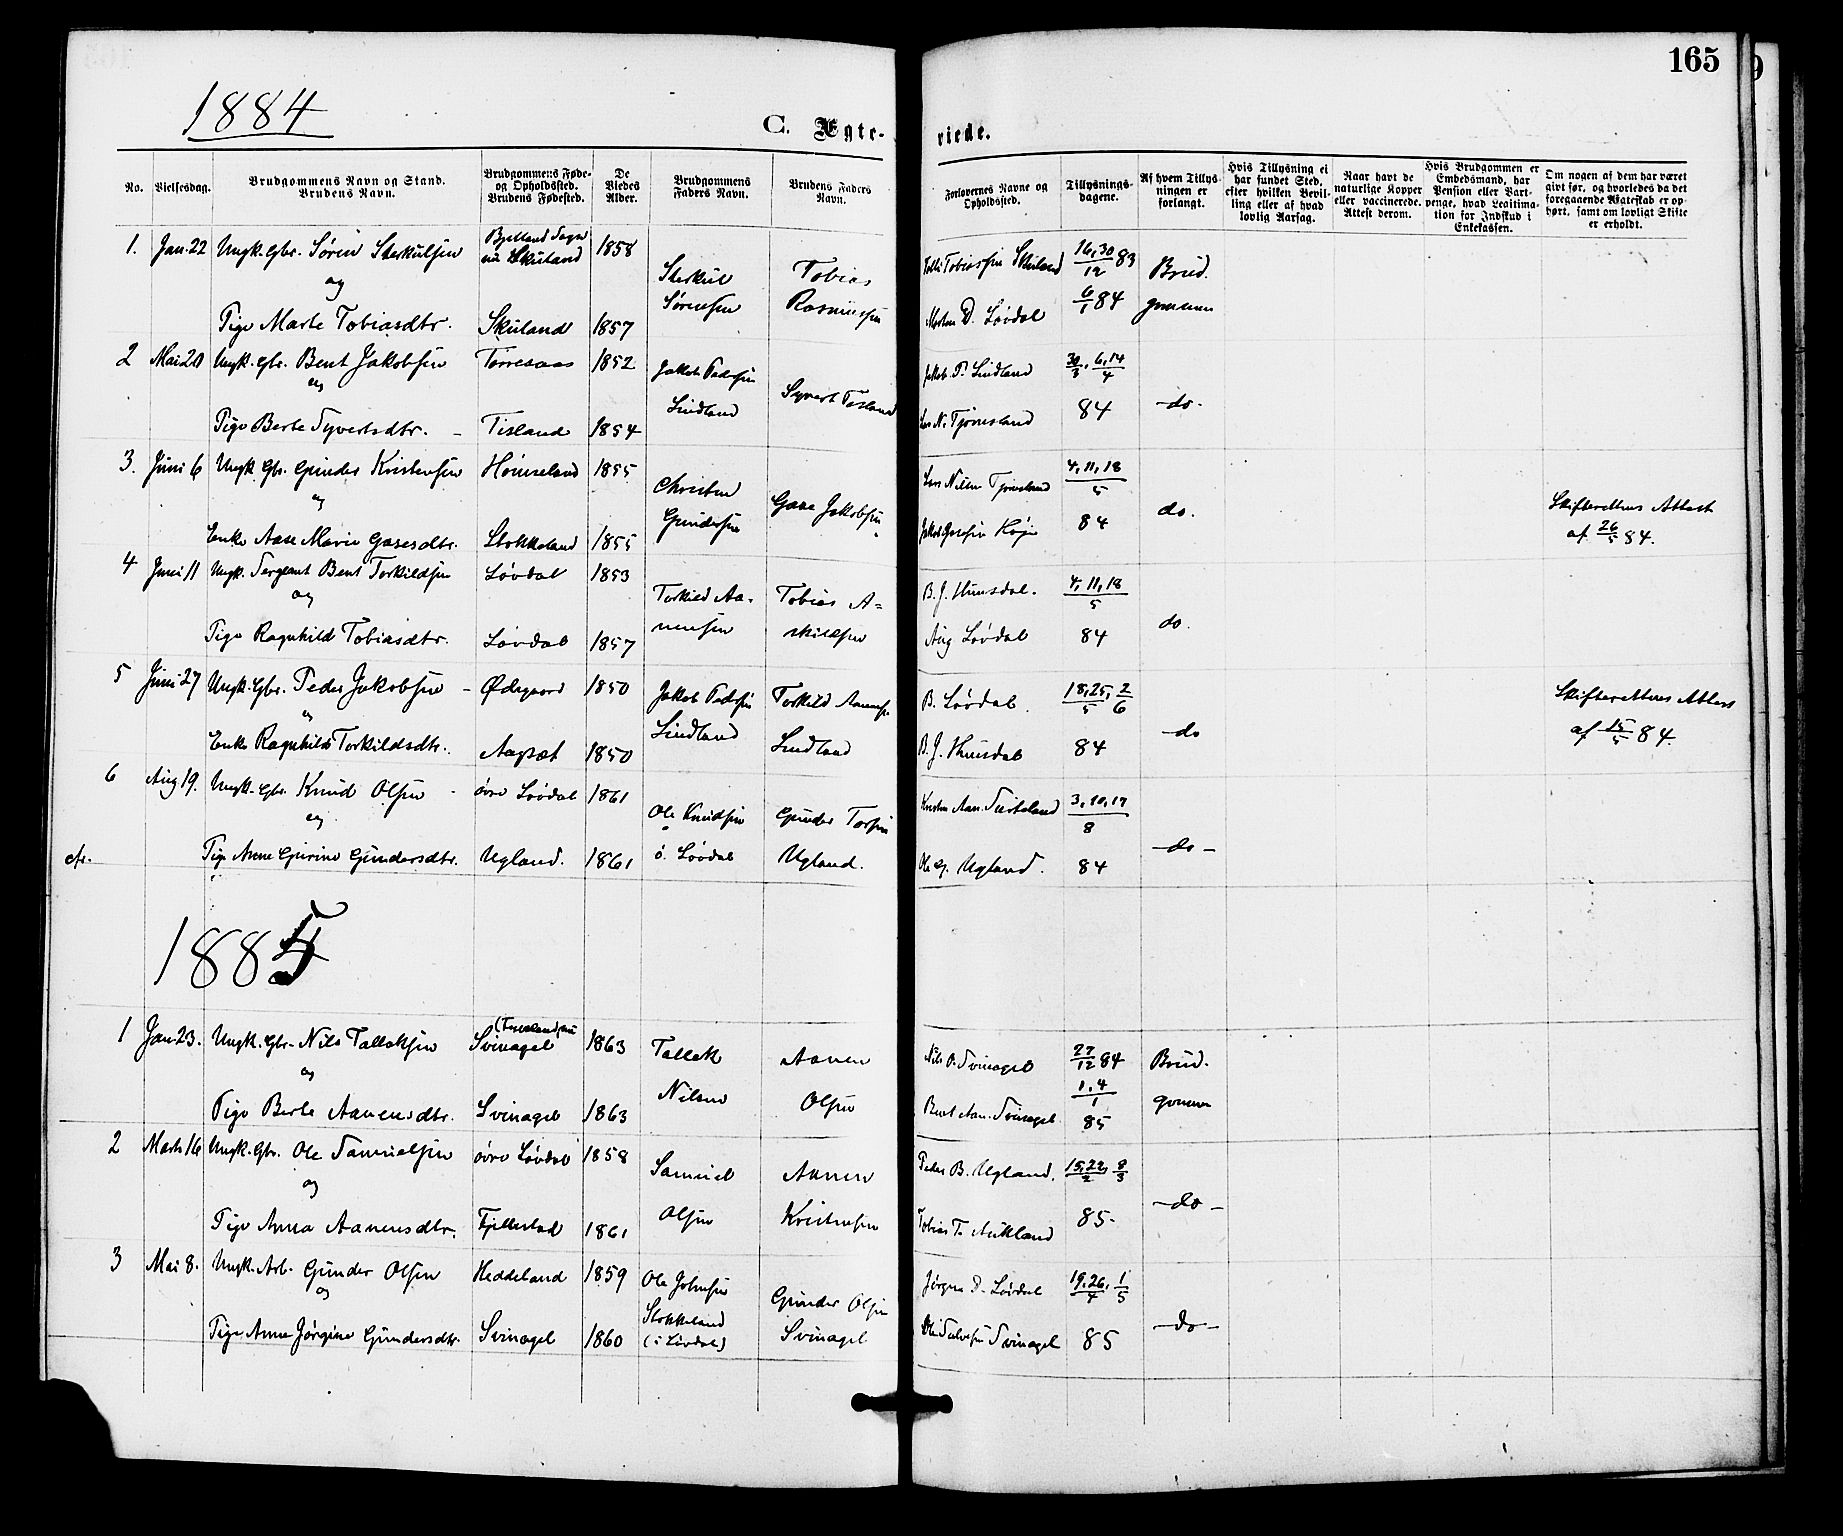 165
1884
C. Ægte- viede.
No.
Vielsesdag.
Brudgommens Navn og Stand.
Brudens Navn.
Brudgommens Føde-
og Opholdssted.
Brudens Fødested.
De
Viedes
Alder.
Brudgommens
Faders Navn.
Brudens Faders
Navn.
Forlovernes Navne og
Opholdssted.
Tillysnings-
dagene.
Af hvem Tillys-
ningen er
forlangt.
Hvis Tillysning ei
har fundet Sted,
efter hvilken Bevil-
ling eller af hvad
lovlig Aarsag.
Naar havt de
naturlige Kopper
eller vaccinerede.
Attest derom.
Hvis Brudgommen er
Embedsmand, har
Pension eller Vart-
penge, hvad Legitima-
tion for Indskud i
Enkekassen.
Om nogen af dem har været
gift før, og hvorledes da det
foregaaende Ægteskab er op-
hørt, samt om lovligt Skifte
er erholdt.
1. Jan. 22 Ungk. Gbr. Søren Sterkulsen
og
Pige Marte Tobiasdtr.
Bjelland Sogn
nu Skuland 1858
Skuland 1857
Sterkul
Sørensen
Tobias
Rasmussen
Tobiassen Skuland
Morten D. Løvdal
16, 30/12 83
6/1 84
Brud-
gommen
2 Mai 20 Ungk. Gbr. Bent Jakobsen
og
Pige Berte Syvertsdtr. -
Torresaas 1852
Tisland 1854
Jakob Pedersen
Lindland
Syvert Tisland
Jakob P. Lindland
Lars N. Tjomsland
30/3, 6, 14/4
84
-do-
3. Juni 6 Ungk. Gbr. Gunder Kristensen
og
Enke Aase Marie Gasesdtr.
Homseland 1855
Stokkeland 1855
Christen
Gundersen
Gase Jakobsen
Lars Nilsen Tjomsland
4, 11, 18/5
84
do.
Skifterettens Attest
af 26/5 84.
4 Juni 11 Ungk. Sergeant Bent Torkildsen
og
Pige Ragnhild Tobiasdtr.
Løvdal 1853
Løvdal 1857
Torkild Aa-
nensen
Tobias A=
skildsen
B. J. Hunsdal.
Aug Løvdal
4, 11, 18/5
84
do.
5 Juni 27 Ungk. Gbr. Peder Jakobsen -
og
Enke Ragnhild Torkildsdtr.
Ødegaard 1850
Aagsæt 1850
Jakob Pedersen
Lindland
Torkild Aanensen
Lindland
B. Løvdal.
B. J. Hunsdal
18, 25/5, 2/6
84
-do
Skifterettens Attest
af 15/5 84.
6 Aug 19. Ungk. Gbr. Knud Olsen -
og
cfr. Pige Anne Gurine Gundersdtr.
øvre Løvdal 1861
Ugland. 1861
Ole Knudsen
ø. Løvdal
Gunder Torsen
Ugland.
Kristen Aan.
Ole G. Ugland.
3, 10, 17/8
84
-do-
1885
1 Jan. 23. Ungk. Gbr. Nils Tallaksen
og
Pige Berte Aanensdtr.
Svinagel 1863
Svinagel 1863
Tallak
Nilsen
Aanen
Olsen
Nils O. Svinagel
Bent Aan. Svinagel
27/12 84
1, 4/1
85
Brud-
gommen
2 Marts 16 Ungk. Gbr. Ole Samuelsen
og
Pige Anna Aanensdtr.
øvre Løvdal 1858
Fjellestad 1861
Samuel
Olsen
Aanen
Kristensen
Peder B. Ugland.
Tobias T. Aukland
15, 22/2, 8/3
85.
-do-
3 Mai 8. Ungk. Arb. Gunder Olsen
og
Pige Anne Jørgine Gundersdtr.
Heddeland 1859
Svinagel 1860
Ole Johnsen
Stokkeland
(i Løvdal)
Gunder Olsen
Svinagel
Jørgen D. Løvdal
Ole Salvesen Svinagel
19, 26/4, 1/5
85
-do-